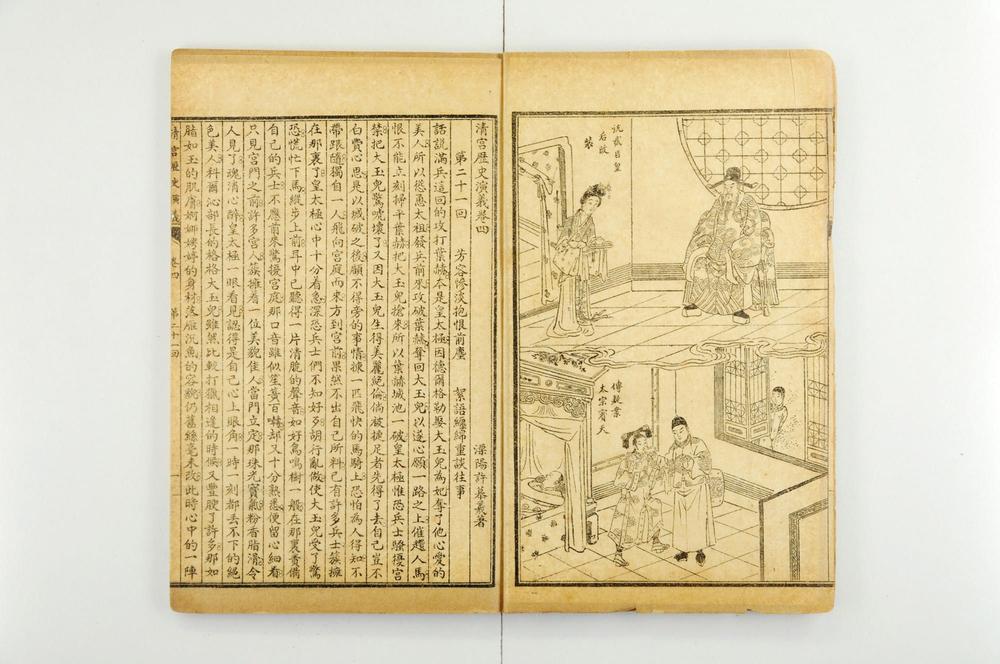 皇
后
裝
傳疑案
太宗賓天
清宮歷史演義卷四
溧陽許慕羲著
第二十一回　芳容慘淡抱恨前塵　絮語纏綿重談往事
話說滿兵這回的攻打葉赫本是皇太極因德爾格勒娶大玉兒為妃奪了他心愛的
美人所以慫恿太祖發兵前來攻破葉赫奪回大玉兒以遂心願一路之上催趲人馬
恨不能立刻掃平葉赫把大玉兒搶來所以葉赫城池一破皇太極惟恐兵士騷擾宮
禁把大玉兒驚唬壞了又因大玉兒生得美麗絕倫倘被捷足者先得了去自己豈不
白費心思是以城破之後顧不得旁的事情揀一匹飛快的馬騎上恐怕為人得知不
帶跟隨獨自一人飛向宮庭而來方到宮前果然不出自己所料已有許多兵士簇擁
在那裏了皇太極心中十分着急深恐兵士們不知好歹胡行亂做使大玉兒受了驚
恐慌忙下馬縱步上前耳中已聽得一片清脆的聲音如好鳥鳴樹一般在那裏責備
自己的兵士不應前來驚擾宮庭那口音雖似笙簧百囀却又十分熟悉便留心細看
只見宮門之前許多宮人簇擁着一位美貌佳人當門立定那珠光寶氣粉香脂滑令
人見了魂消心醉皇太極一眼看見認得是自己心上眼角一時一刻都丟不下的絕
色美人科爾沁部長的格格大玉兒雖然比較打獵相逢的時候又豐腴了許多那如
脂如玉的肌膚婀娜娉婷的身材落雁沉魚的容貌仍舊絲毫未改此時心中的一陣
清宮歷史演義　卷四　第二十一回　一